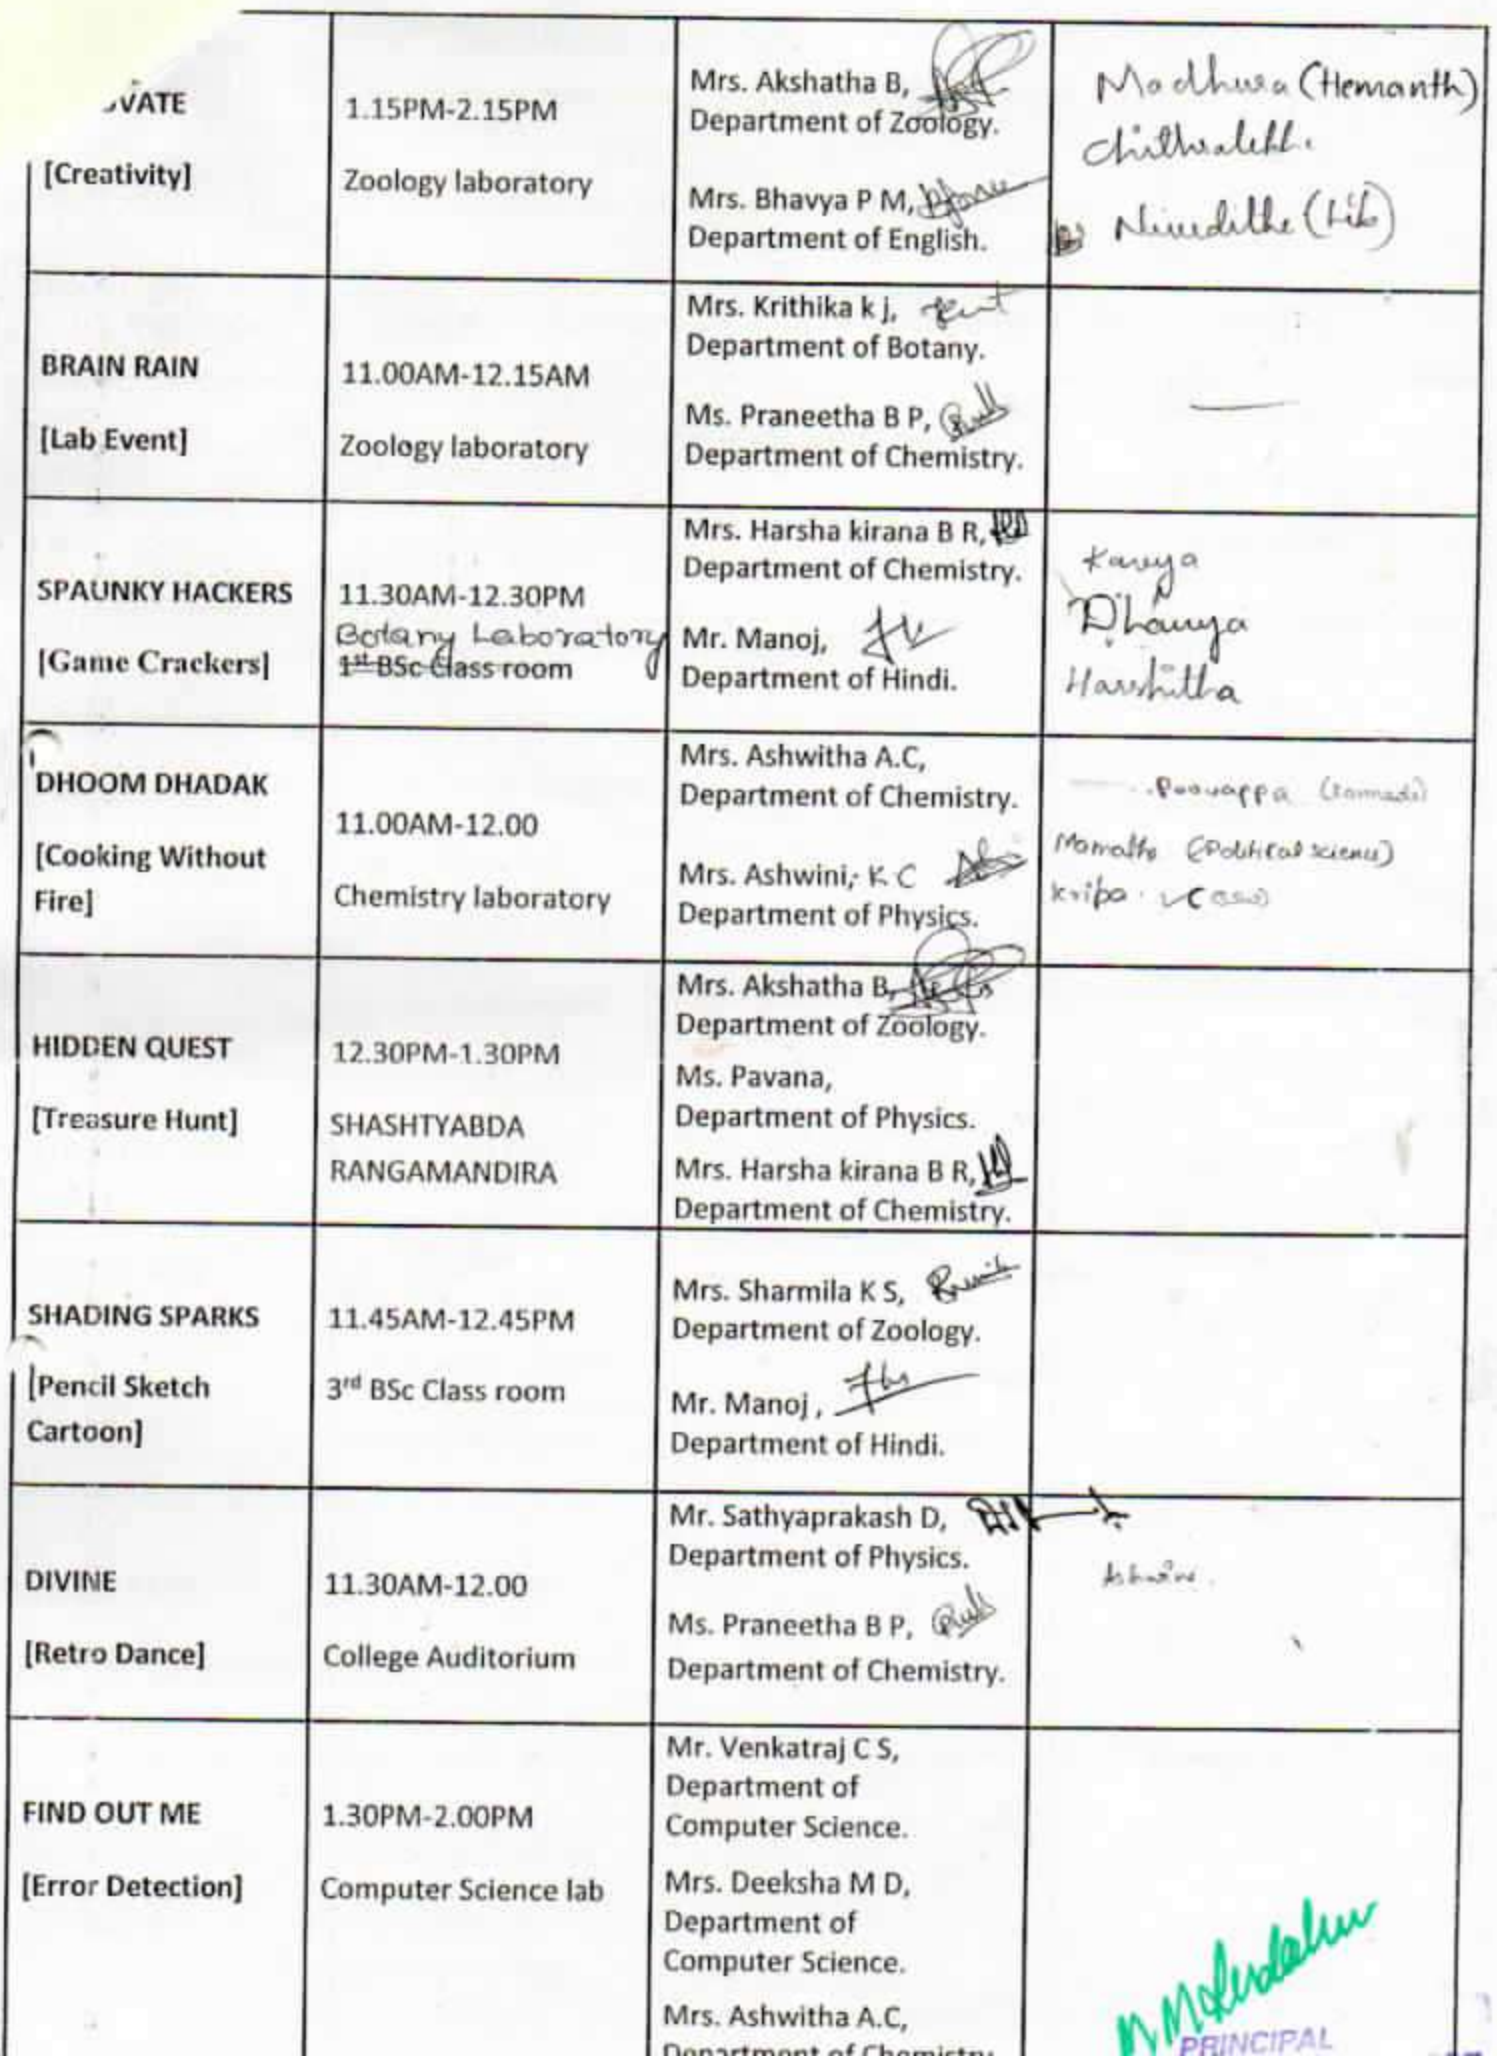 VATE
[Creativity]
1.15PM-2.15PM
Zoology laboratory
Mrs. Akshatha B,
Department of Zoology.
Mrs. Bhavya P M,
Department of English.
Madhura (Hemanth)
(Lib)
BRAIN RAIN
[Lab Event]
11.00AM-12.15AM
Zoology laboratory
Mrs. Krithika k j,
Department of Botany.
Ms. Praneetha B P,
Department of Chemistry.
SPAUNKY HACKERS
[Game Crackers]
11.30AM-12.30PM
Botany Laboratory
1st BSc Class room
Mrs. Harsha kirana B R,
Department of Chemistry.
Mr. Manoj,
Department of Hindi.
Kavya
Dhanya
Harshitha
DHOOM DHADAK
[Cooking Without
Fire]
11.00AM-12.00
Chemistry laboratory
Mrs. Ashwitha A.C,
Department of Chemistry.
Mrs. Ashwini, K C
Department of Physics.
Poovappa
(Political science)
HIDDEN QUEST
[Treasure Hunt]
12.30PM-1.30PM
SHASHTYABDA
RANGAMANDIRA
Mrs. Akshatha B,
Department of Zoology.
Ms. Pavana,
Department of Physics.
Mrs. Harsha kirana B R,
Department of Chemistry.
SHADING SPARKS
[Pencil Sketch
Cartoon]
11.45AM-12.45PM
3rd BSc Class room
Mrs. Sharmila K S,
Department of Zoology.
Mr. Manoj ,
Department of Hindi.
DIVINE
[Retro Dance]
11.30AM-12.00
College Auditorium
Mr. Sathyaprakash D,
Department of Physics.
Ms. Praneetha B P,
Department of Chemistry.
FIND OUT ME
[Error Detection]
1.30PM-2.00PM
Computer Science lab
Mr. Venkatraj C S,
Department of
Computer Science.
Mrs. Deeksha M D,
Department of
Computer Science.
Mrs. Ashwitha A.C,
Department of Chemistry.
PRINCIPAL